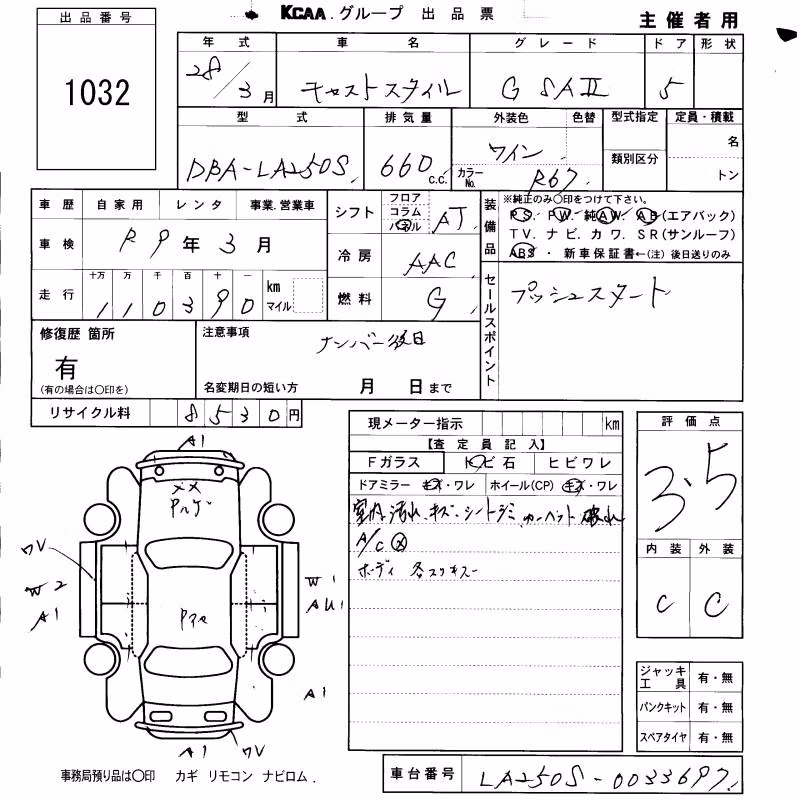 KCAA.グループ 出品票
主催者用
出品番号
1032
年式 車名 グレード ドア 形状
28/3月 キャストスタイル G SAⅡ 5
型式 排気量 外装色 色替 型式指定 定員・積載
DBA-LA250S 660 c.c. ワイン カラーNo. R67 類別区分 名
トン
車歴 自家用 レンタ 事業.営業車
車検 R9年3月
走行 十万 万 千 百 十 一
110390 km マイル
シフト フロア コラム パネル AT
冷房 AAC
燃料 G
装備品
※純正のみ○印をつけて下さい。
PS. PW. 純AW. AB(エアバック)
TV. ナビ. カワ. SR(サンルーフ)
ABS ・ 新車保証書←(注) 後日送りのみ
セールスポイント
プッシュスタート
修復歴 箇所
有
(有の場合は○印を)
注意事項
ナンバー後日
名変期日の短い方 月 日まで
リサイクル料 8530円
現メーター指示 km
【査定員記入】
Fガラス トビ石 ヒビワレ
ドアミラー キズ・ワレ ホイール(CP) キズ・ワレ
室内汚れ.キズ.シートジミ.カーペット破れ
A/C
ボディ 各スリキズ
評価点
3.5
内装 外装
C C
ジャッキ 工具 有・無
パンクキット 有・無
スペアタイヤ 有・無
A1
メメ
ワV
W2
A1
W1
AU1
A1
A1
ワV
事務局預り品は○印 カギ リモコン ナビロム.
車台番号 LA250S-0033697